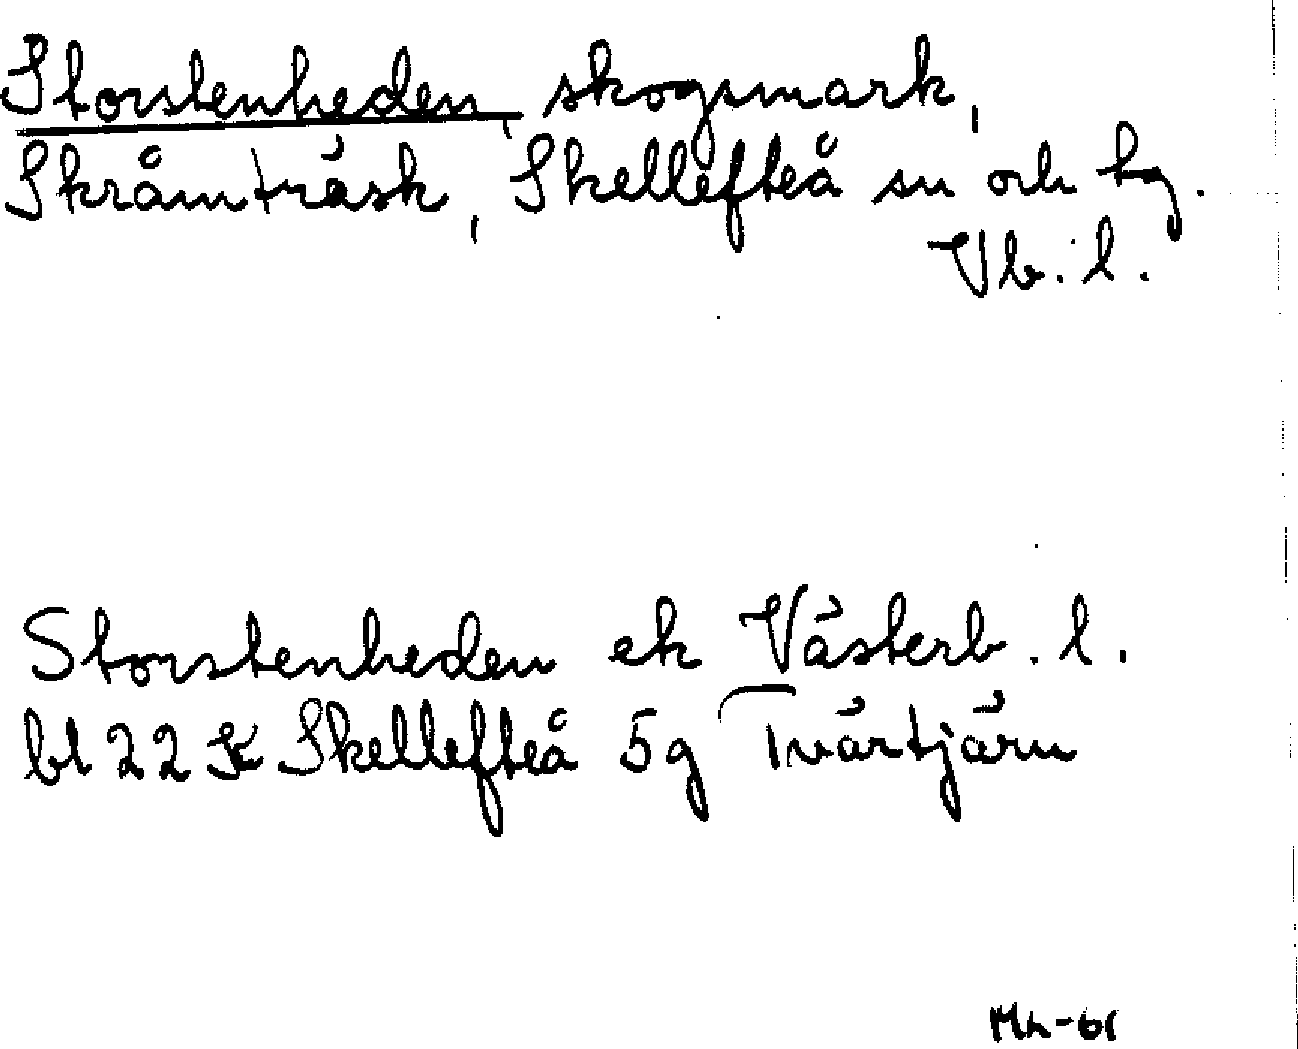 Storstenheden, skogsmark,
Skråmträsk, Skellefteå sn och tg.
Vb. l.
Storstenheden ek Västerb. l.
bl 22 K Skellefteå 5g Tvärtjärn